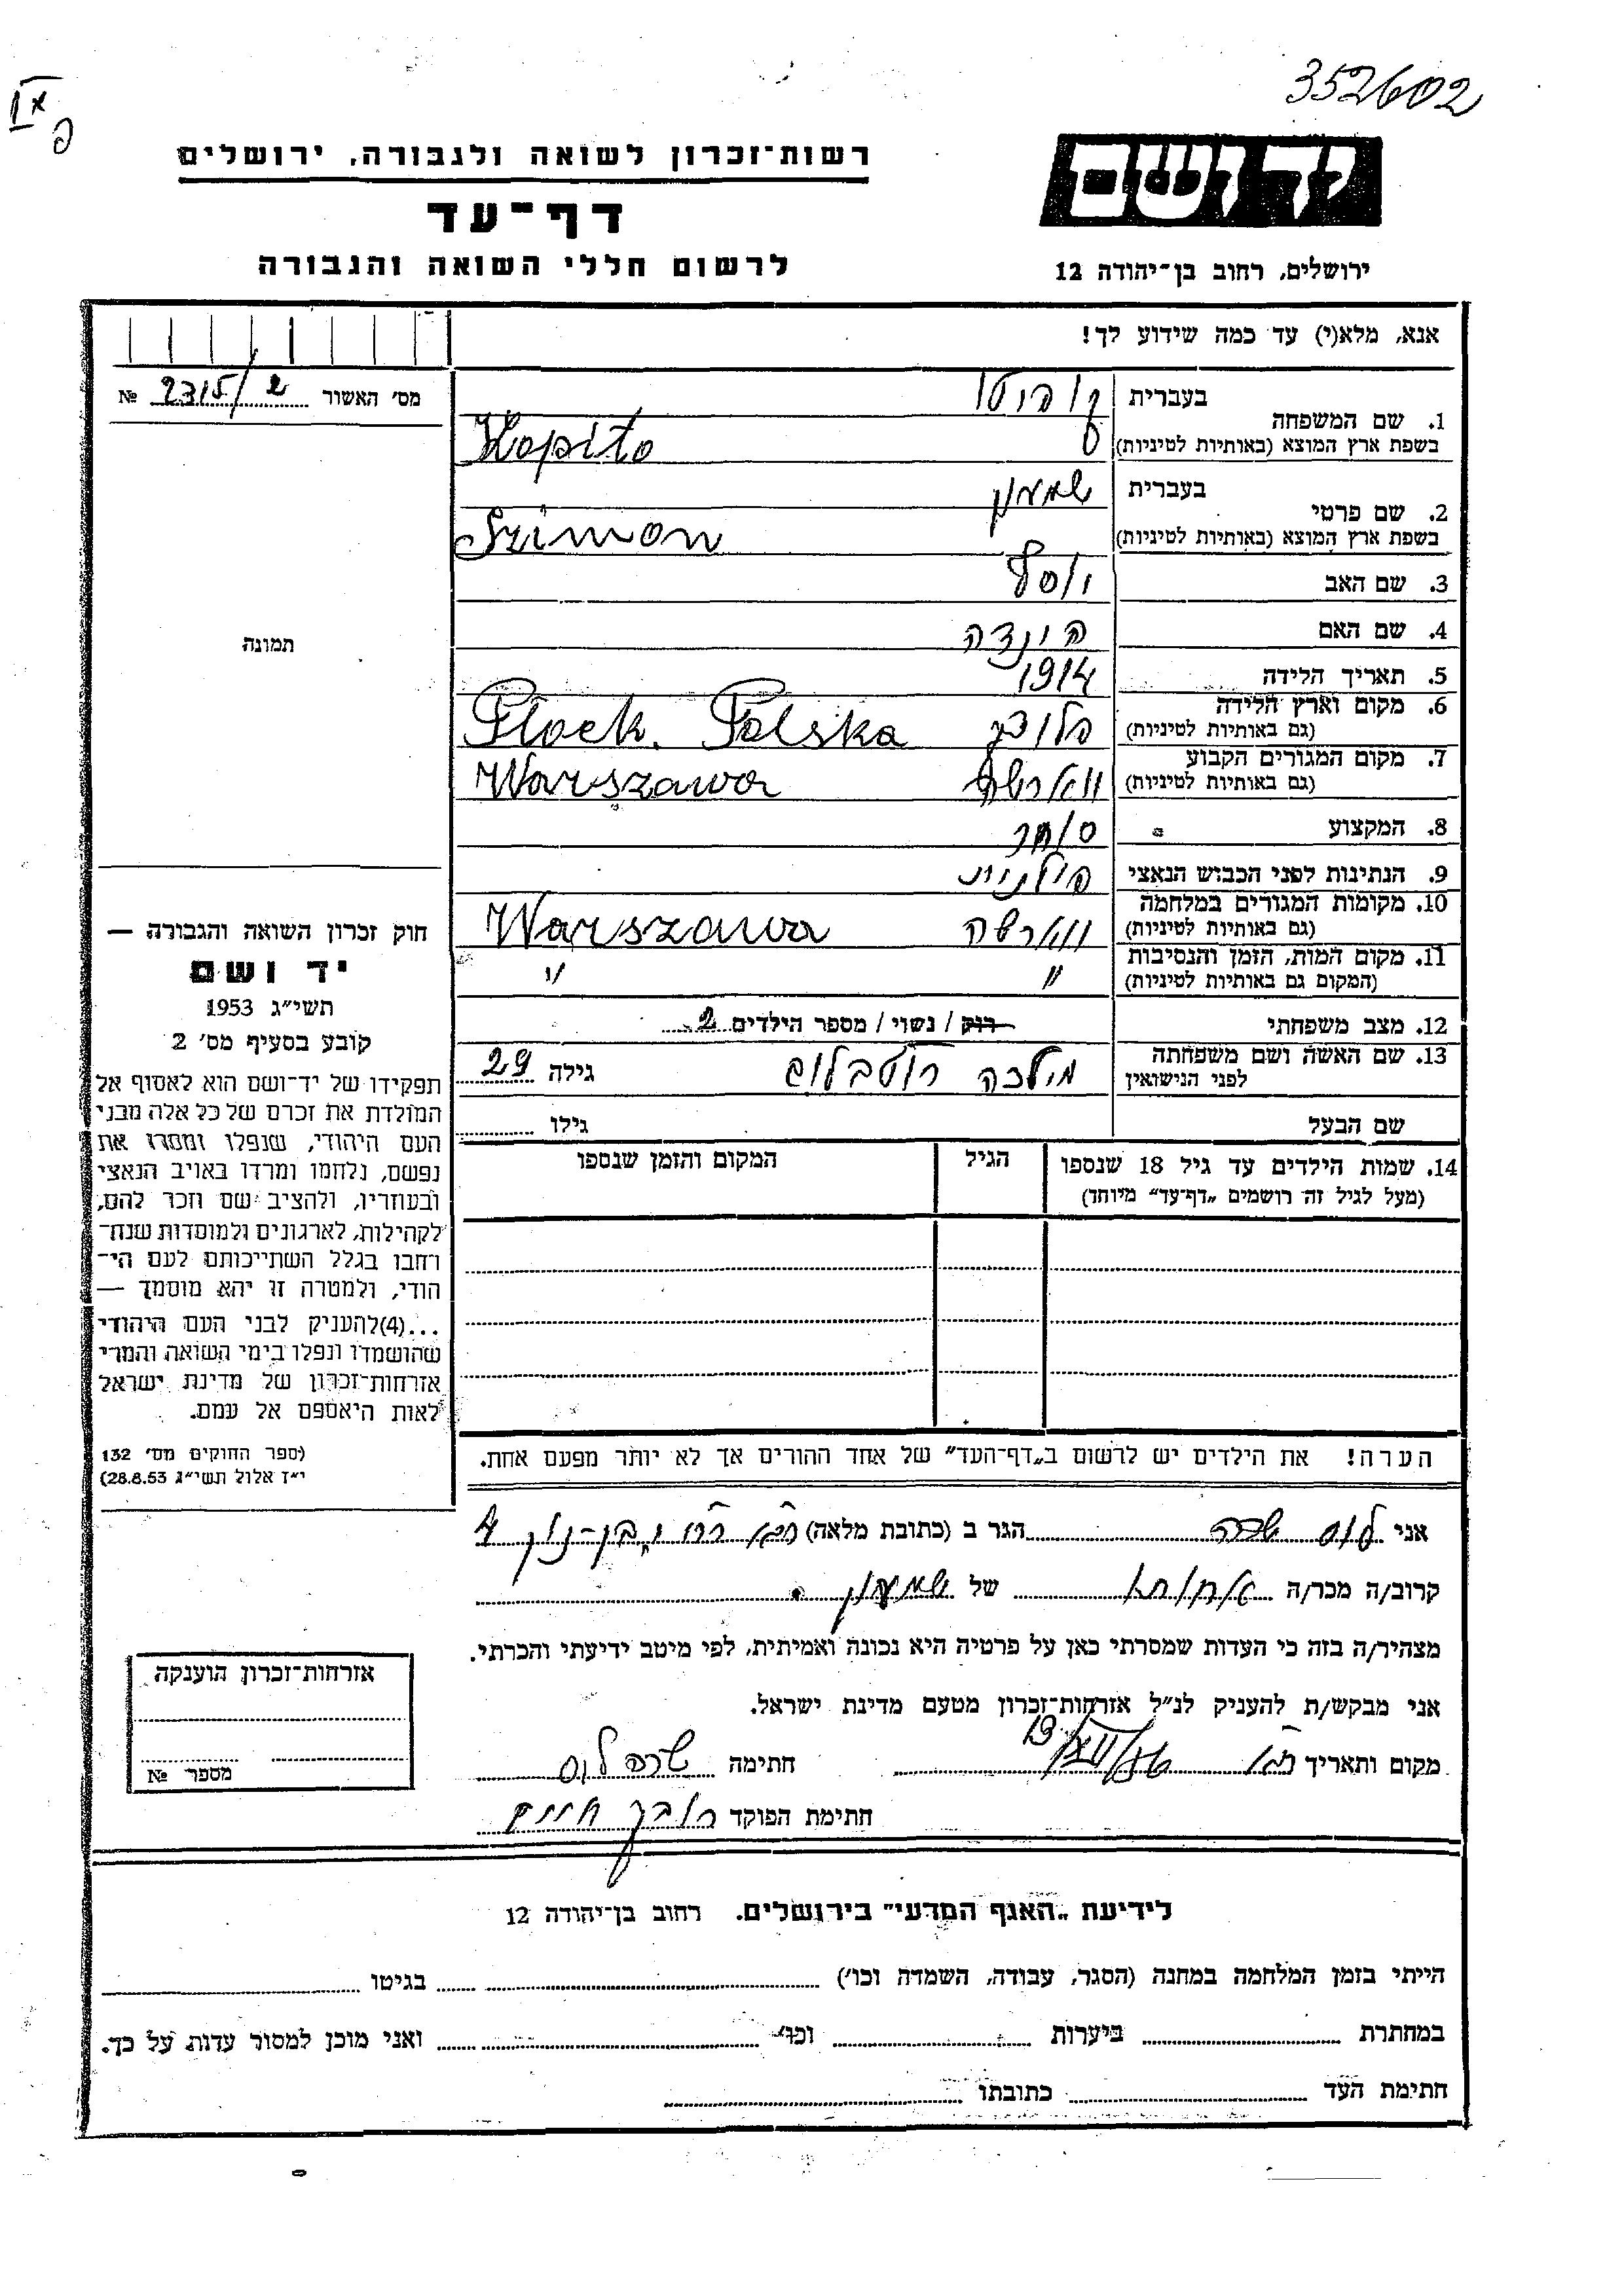 352602
רשות־זכרון לשואה ולגבורה, ירושלים
יד ושם
דף־עד
לרשום חללי השואה והגבורה
ירושלים, רחוב בן־יהודה 12
אנא, מלא(י) עד כמה שידוע לך!
מס׳ האשור 2315/2 №
1. שם המשפחה
בעברית קופיטו
בשפת ארץ המוצא (באותיות לטיניות) Kopito
2. שם פרטי
בעברית שמעון
בשפת ארץ המוצא (באותיות לטיניות) Szimon
3. שם האב יוסף
4. שם האם הינדה
5. תאריך הלידה 1914
6. מקום וארץ הלידה
(גם באותיות לטיניות) פלוצק Płock. Polska
7. מקום המגורים הקבוע
(גם באותיות לטיניות) ווארשה Warszawa
8. המקצוע סוחר
9. הנתינות לפני הכבוש הנאצי פולנית
10. מקומות המגורים במלחמה
(גם באותיות לטיניות) ווארשה Warszawa
11. מקום המות, הזמן והנסיבות
(המקום גם באותיות לטיניות) " "
12. מצב משפחתי רווק / נשוי / מספר הילדים 2
13. שם האשה ושם משפחתה
לפני הנישואין מילכה רוטבלום גילה 29
שם הבעל גילו
14. שמות הילדים עד גיל 18 שנספו הגיל המקום והזמן שנספו
(מעל לגיל זה רושמים „דף־עד״ מיוחד)
הערה! את הילדים יש לרשום ב„דף־העד״ של אחד ההורים אך לא יותר מפעם אחת.
תמונה
חוק זכרון השואה והגבורה —
יד ושם
תשי״ג 1953
קובע בסעיף מס׳ 2
תפקידו של יד־ושם הוא לאסוף אל
המולדת את זכרם של כל אלה מבני
העם היהודי, שנפלו ומסרו את
נפשם, נלחמו ומרדו באויב הנאצי
ובעוזריו, ולהציב שם וזכר להם,
לקהילות, לארגונים ולמוסדות שנח־
רחבו בגלל השתייכותם לעם הי־
הודי, ולמטרה זו יהא מוסמך —
...(4) להעניק לבני העם היהודי
שהושמדו ונפלו בימי השואה והמרי
אזרחות־זכרון של מדינת ישראל
לאות היאספם אל עמם.
(ספר החוקים מס׳ 132
י״ז אלול תשי״ג 28.8.53)
אני לוס שרה הגר ב (כתובת מלאה) בן-נון 4
קרוב/ה מכר/ה אחותו של שמעון
מצהיר/ה בזה כי העדות שמסרתי כאן על פרטיה היא נכונה ואמיתית, לפי מיטב ידיעתי והכרתי.
אני מבקש/ת להעניק לנ״ל אזרחות־זכרון מטעם מדינת ישראל.
מקום ותאריך חתימה שרה לוס
חתימת הפוקד חיים
אזרחות־זכרון הוענקה
מספר №
לידיעת „האגף המדעי״ בירושלים. רחוב בן־יהודה 12
הייתי בזמן המלחמה במחנה (הסגר, עבודה, השמדה וכו׳) בגיטו
במחתרת ביערות וכו׳ ואני מוכן למסור עדות על כך.
חתימת העד כתובתו